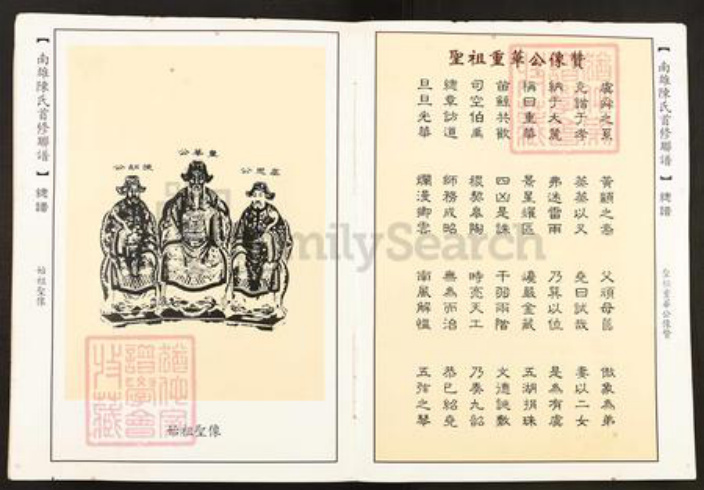 【南雄陳氏首修聯譜】總譜
聖祖重華公像贊
聖祖重華公像贊
虞舜之 黃顓之裔 父頑母嚚 傲象為弟
克諧于孝 蒸蒸以乂 堯曰試哉 妻以二女
納于大麓 弗迷雷雨 乃巽以位 是為有虞
稱曰重華 景星耀區 巉巖金藏 五湖捐珠
苗鯀共歡 四凶是誅 干羽兩階 文德誕敷
司空伯禹 稷契皋陶 時亮天工 乃奏九韶
總章訪道 師務成昭 無為而治 恭己紹堯
旦旦光華 爛漫卿雲 南風解慍 五弦之琴
虞思公
重華公
陳胡公
始祖聖像
【南雄陳氏首修聯譜】總譜
始祖聖像
FamilySearch